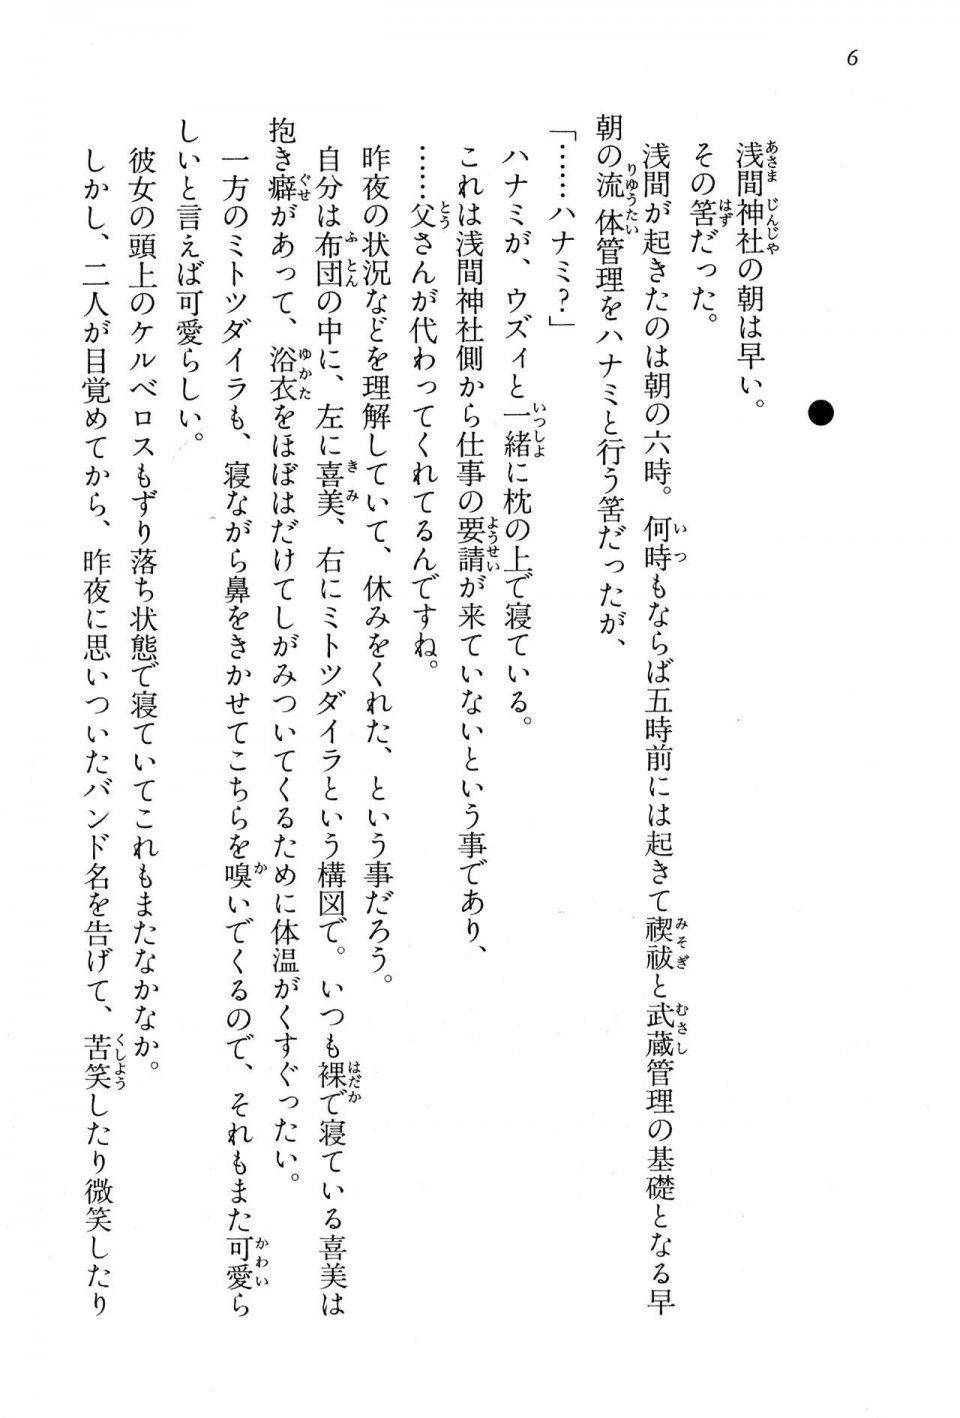 6
●
浅間神社の朝は早い。
その筈だった。
浅間が起きたのは朝の六時。何時もならば五時前には起きて禊祓と武蔵管理の基礎となる早
朝の流体管理をハナミと行う筈だったが、
「……ハナミ？」
ハナミが、ウズィと一緒に枕の上で寝ている。
これは浅間神社側から仕事の要請が来ていないという事であり、
……父さんが代わってくれてるんですね。
昨夜の状況などを理解していて、休みをくれた、という事だろう。
自分は布団の中に、左に喜美、右にミトツダイラという構図で。いつも裸で寝ている喜美は
抱き癖があって、浴衣をほぼはだけてしがみついてくるために体温がくすぐったい。
一方のミトツダイラも、寝ながら鼻をきかせてこちらを嗅いでくるので、それもまた可愛ら
しいと言えば可愛らしい。
彼女の頭上のケルベロスもずり落ち状態で寝ていてこれもまたなかなか。
しかし、二人が目覚めてから、昨夜に思いついたバンド名を告げて、苦笑したり微笑したり